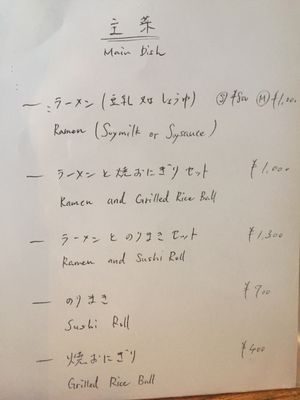 主菜
Main Dish
ラーメン (豆乳 又は しょうゆ) Ⓢ ¥800 Ⓜ ¥1,200
Ramen (Soymilk or Soysauce)
ラーメンと焼おにぎりセット ¥1,000
Ramen and Grilled Rice Ball
ラーメンとのりまきセット ¥1,300
Ramen and Sushi Roll
のりまき ¥700
Sushi Roll
焼おにぎり ¥400
Grilled Rice Ball